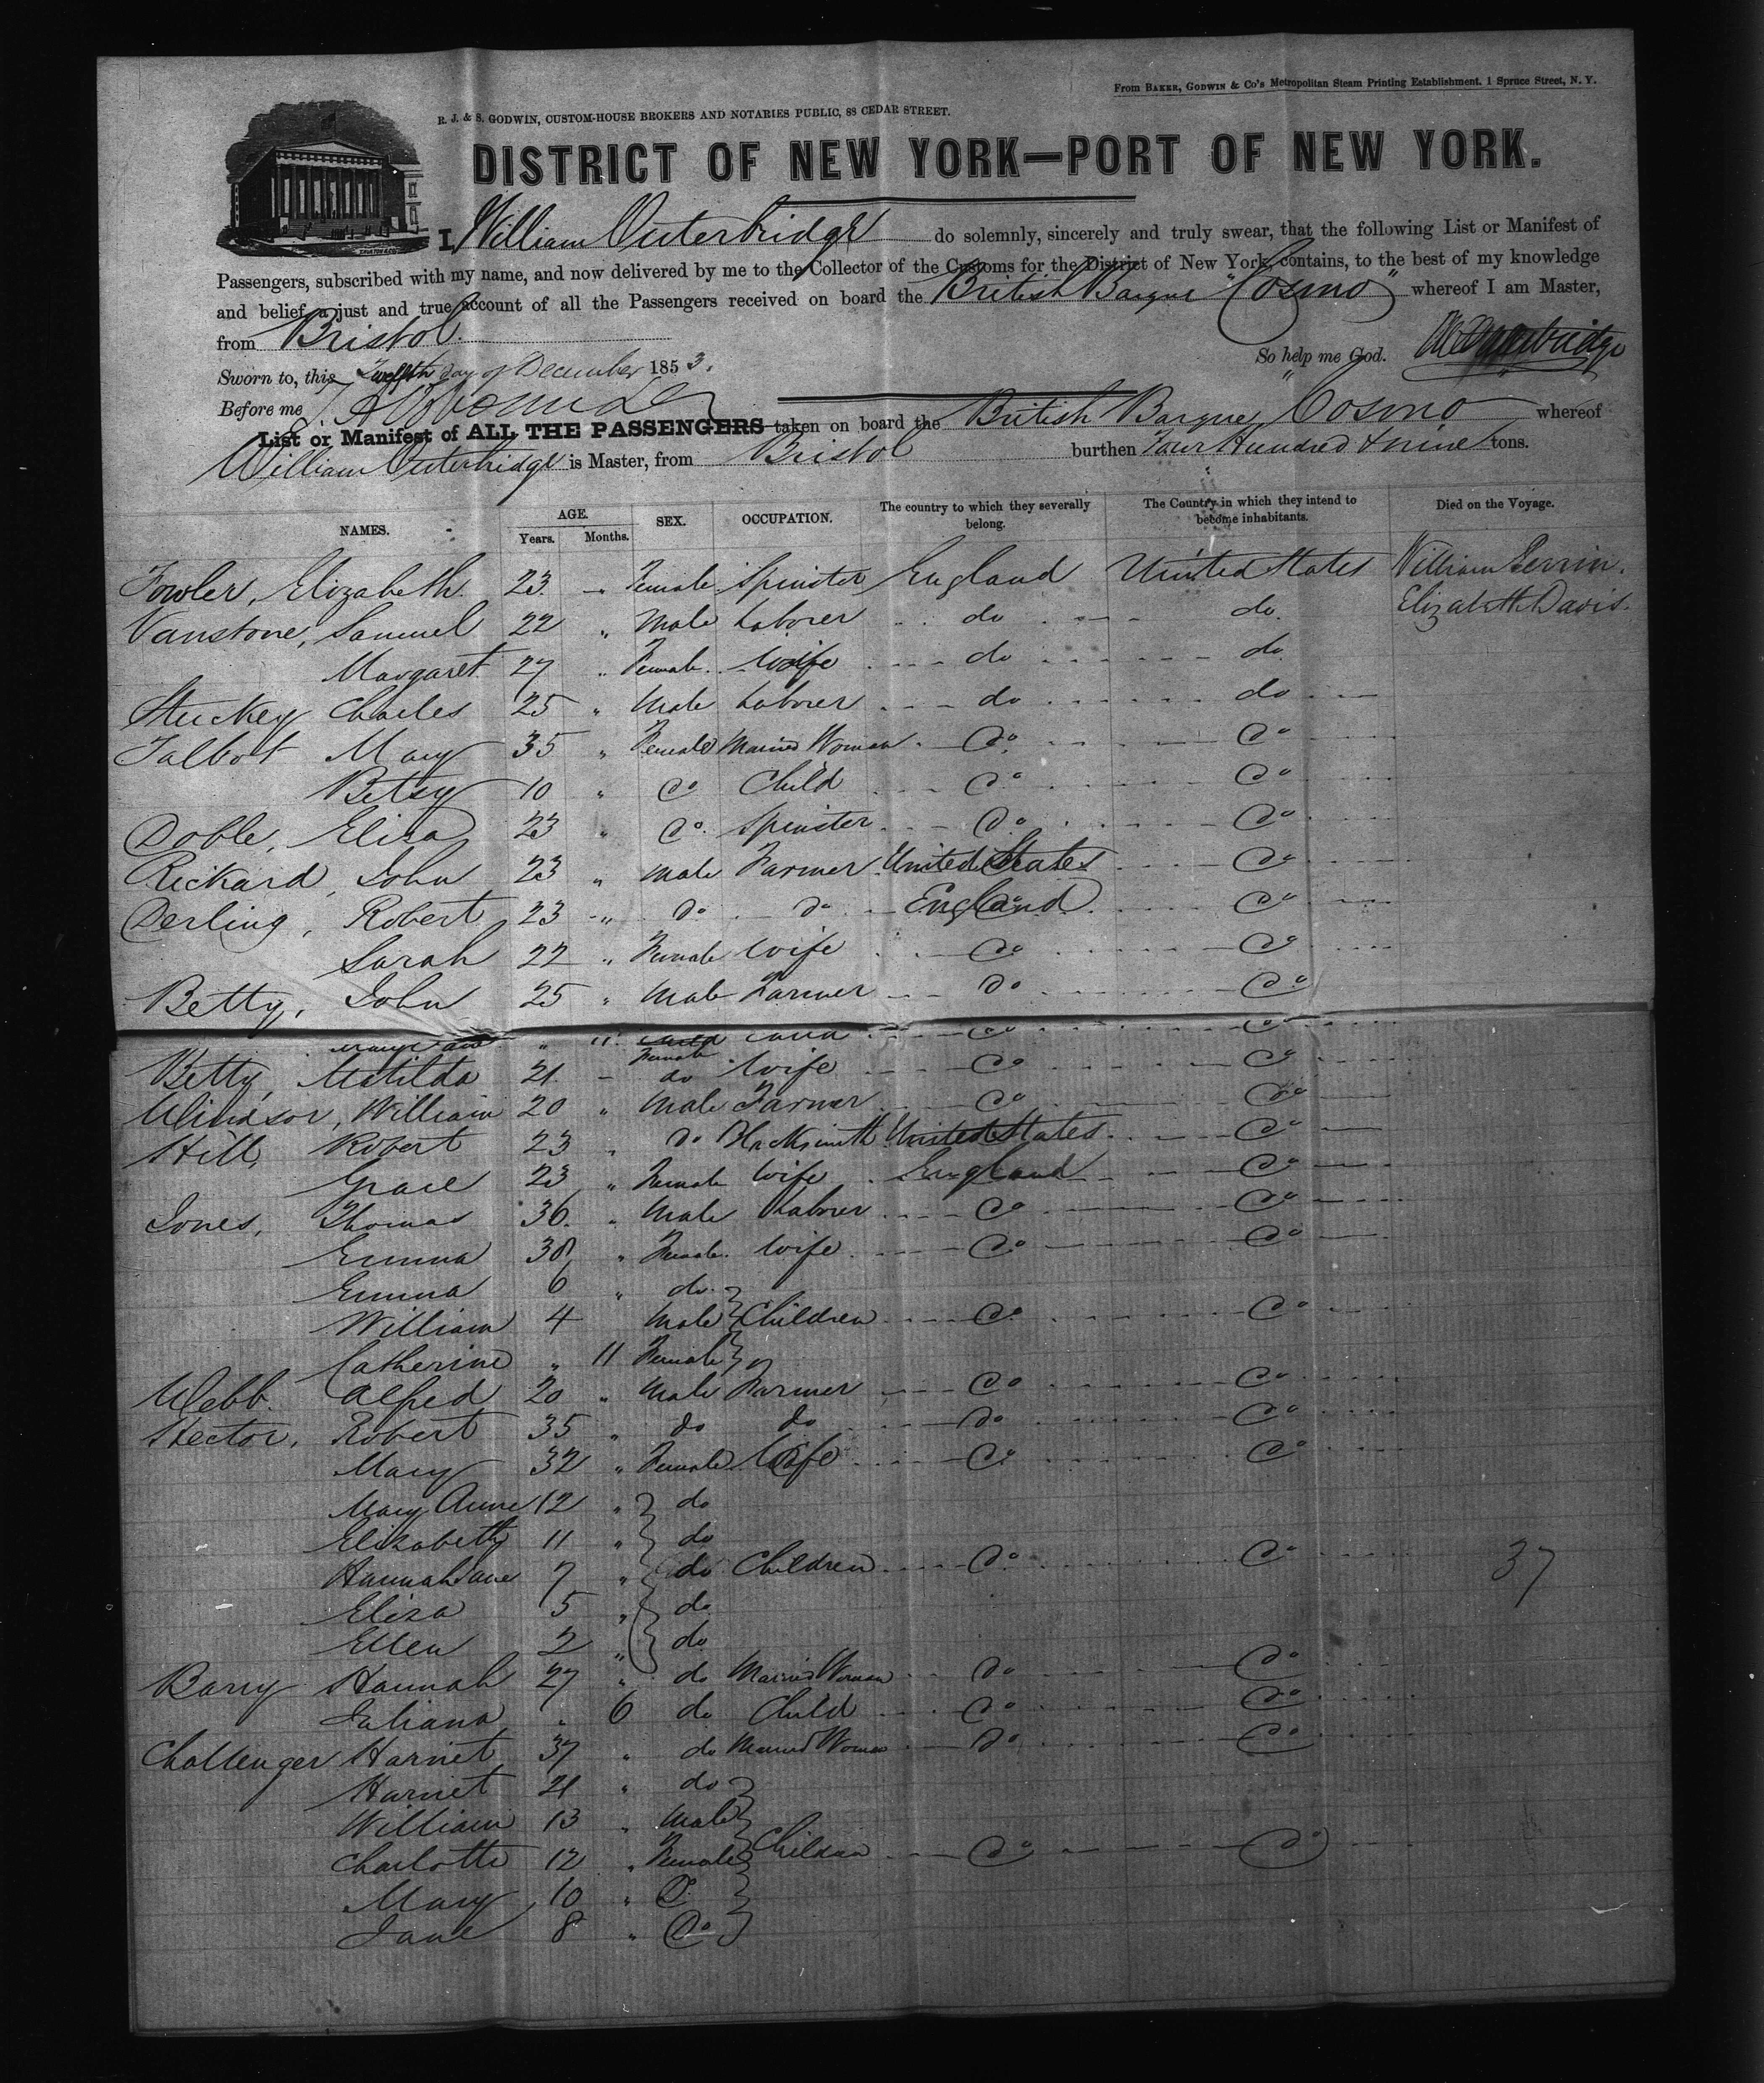 From BAKER, GODWIN & Co's Metropolitan Steam Printing Establishment. 1 Spruce Street, N. Y.
R. J. & S. GODWIN, CUSTOM-HOUSE BROKERS AND NOTARIES PUBLIC, 88 CEDAR STREET.
DISTRICT OF NEW YORK—PORT OF NEW YORK.
I, William Outerbridge do solemnly, sincerely and truly swear, that the following List or Manifest of
Passengers, subscribed with my name, and now delivered by me to the Collector of the Customs for the District of New York, contains, to the best of my knowledge
and belief, a just and true account of all the Passengers received on board the British Barque "Cosmo" whereof I am Master,
from Bristol
So help me God. Outerbridge
Sworn to, this Twelfth day of December 1853.
Before me
List or Manifest of ALL THE PASSENGERS taken on board the British Barque Cosmo whereof
William Outerbridge is Master, from Bristol burthen Four Hundred & nine tons.
NAMES. AGE. Years. Months. SEX. OCCUPATION. The country to which they severally belong. The Country in which they intend to become inhabitants. Died on the Voyage.
Fowler, Elizabeth. 23. " Female Spinster England United States William Perrin.
Vanstone, Samuel 22 " Male Laborer do do. Elizabeth Davis.
Margaret 27 " Female. Wife do do.
Stuckey Charles 25 " Male Laborer do do
Talbot Mary 35 " Female Married Woman Do. Do
Betsy 10 " Do Child Do Do
Doble, Eliza 23 " Do. Spinster Do. Do
Rickard, John 23 " Male Farmer United States Do
Derling, Robert 23 " Do Do England Do
Sarah 22 " Female Wife Do Do
Betty, John 25 " Male Farmer Do Do
" 11 Female Child Do Do
Betty, Matilda 21. do Wife Do Do
Windsor, William 20 " Male Farmer Do Do
Hill, Robert 23 " Do Blacksmith United States Do
Grace 23 " Female Wife England Do
Jones, Thomas 36. " Male Laborer Do Do
Emma 38 " Female. Wife Do Do
Emma 6 " do.
William 4 Male Children Do Do
Catherine " 11 Female
Webb. Alfred 20 " Male Farmer Do Do
Hector, Robert 35 " do do Do Do
Mary 32 " Female Wife Do. Do
Mary Anne 12 " do
Elizabeth 11 " do
Hannah Jane 7 " do Children Do. Do 37
Eliza 5 " do
Ellen 2 " do
Barry Hannah 27 " do Married Woman Do Do
Juliana " 6 do Child Do Do
Challenger Harriet 37 " do Married Woman Do Do
Harriet 21 " do
William 13 " Male
Charlotte 12 " Female Children Do Do
Mary 10 " Do
Jane 8 " Do